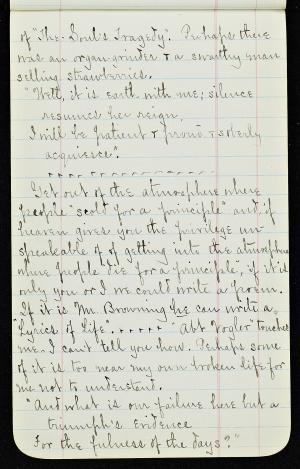 of "The Soul's Tragedy". Perhaps there
was an organ-grinder & a swarthy man
selling strawberries.
"Well, it is earth with me; silence
resumes her reign,
I will be patient & proud & soberly
acquiesce".
Get out of the atmosphere where
people "scold for a principle" and, if
Heaven gives you the privilege un-
speakable of getting into the atmosphere
where people die for a principle, if it is
only you or I we could write a poem.
If it is Mr. Browning he can write a
"Lyrics of Life". "Abt Vogler" touches
me. I can't tell you how. Perhaps some
of it is too near my own broken life for
me not to understand.
"And what is our failure here but a
triumph's evidence
For the fulness of the days?"